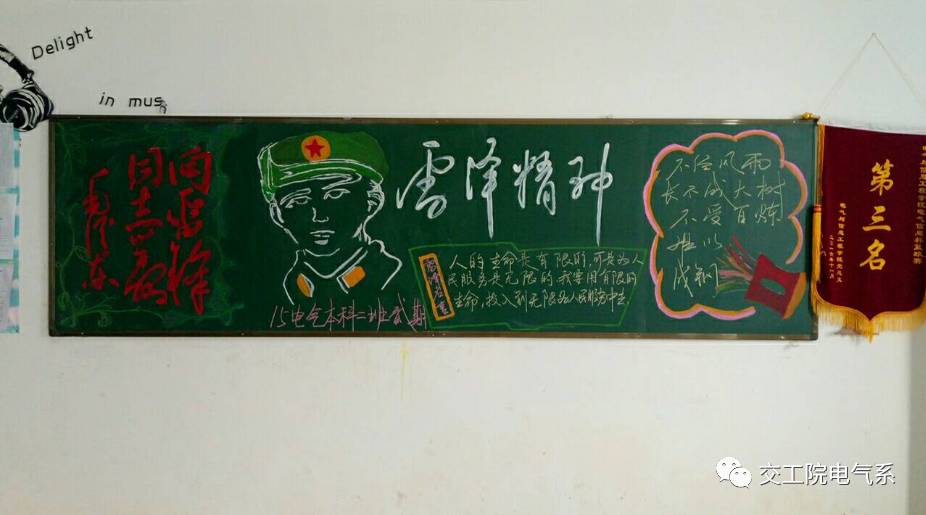 Delight
in mus
向雷锋
同志学习
毛泽东
雷锋精神
人的生命是有限的,可是为人
民服务是无限的,我要用有限的
生命,投入到无限为人民服务中去
15电气本科二班
不经风雨
长不成大树
不受百炼
难以
成钢
第三名
交工院电气系